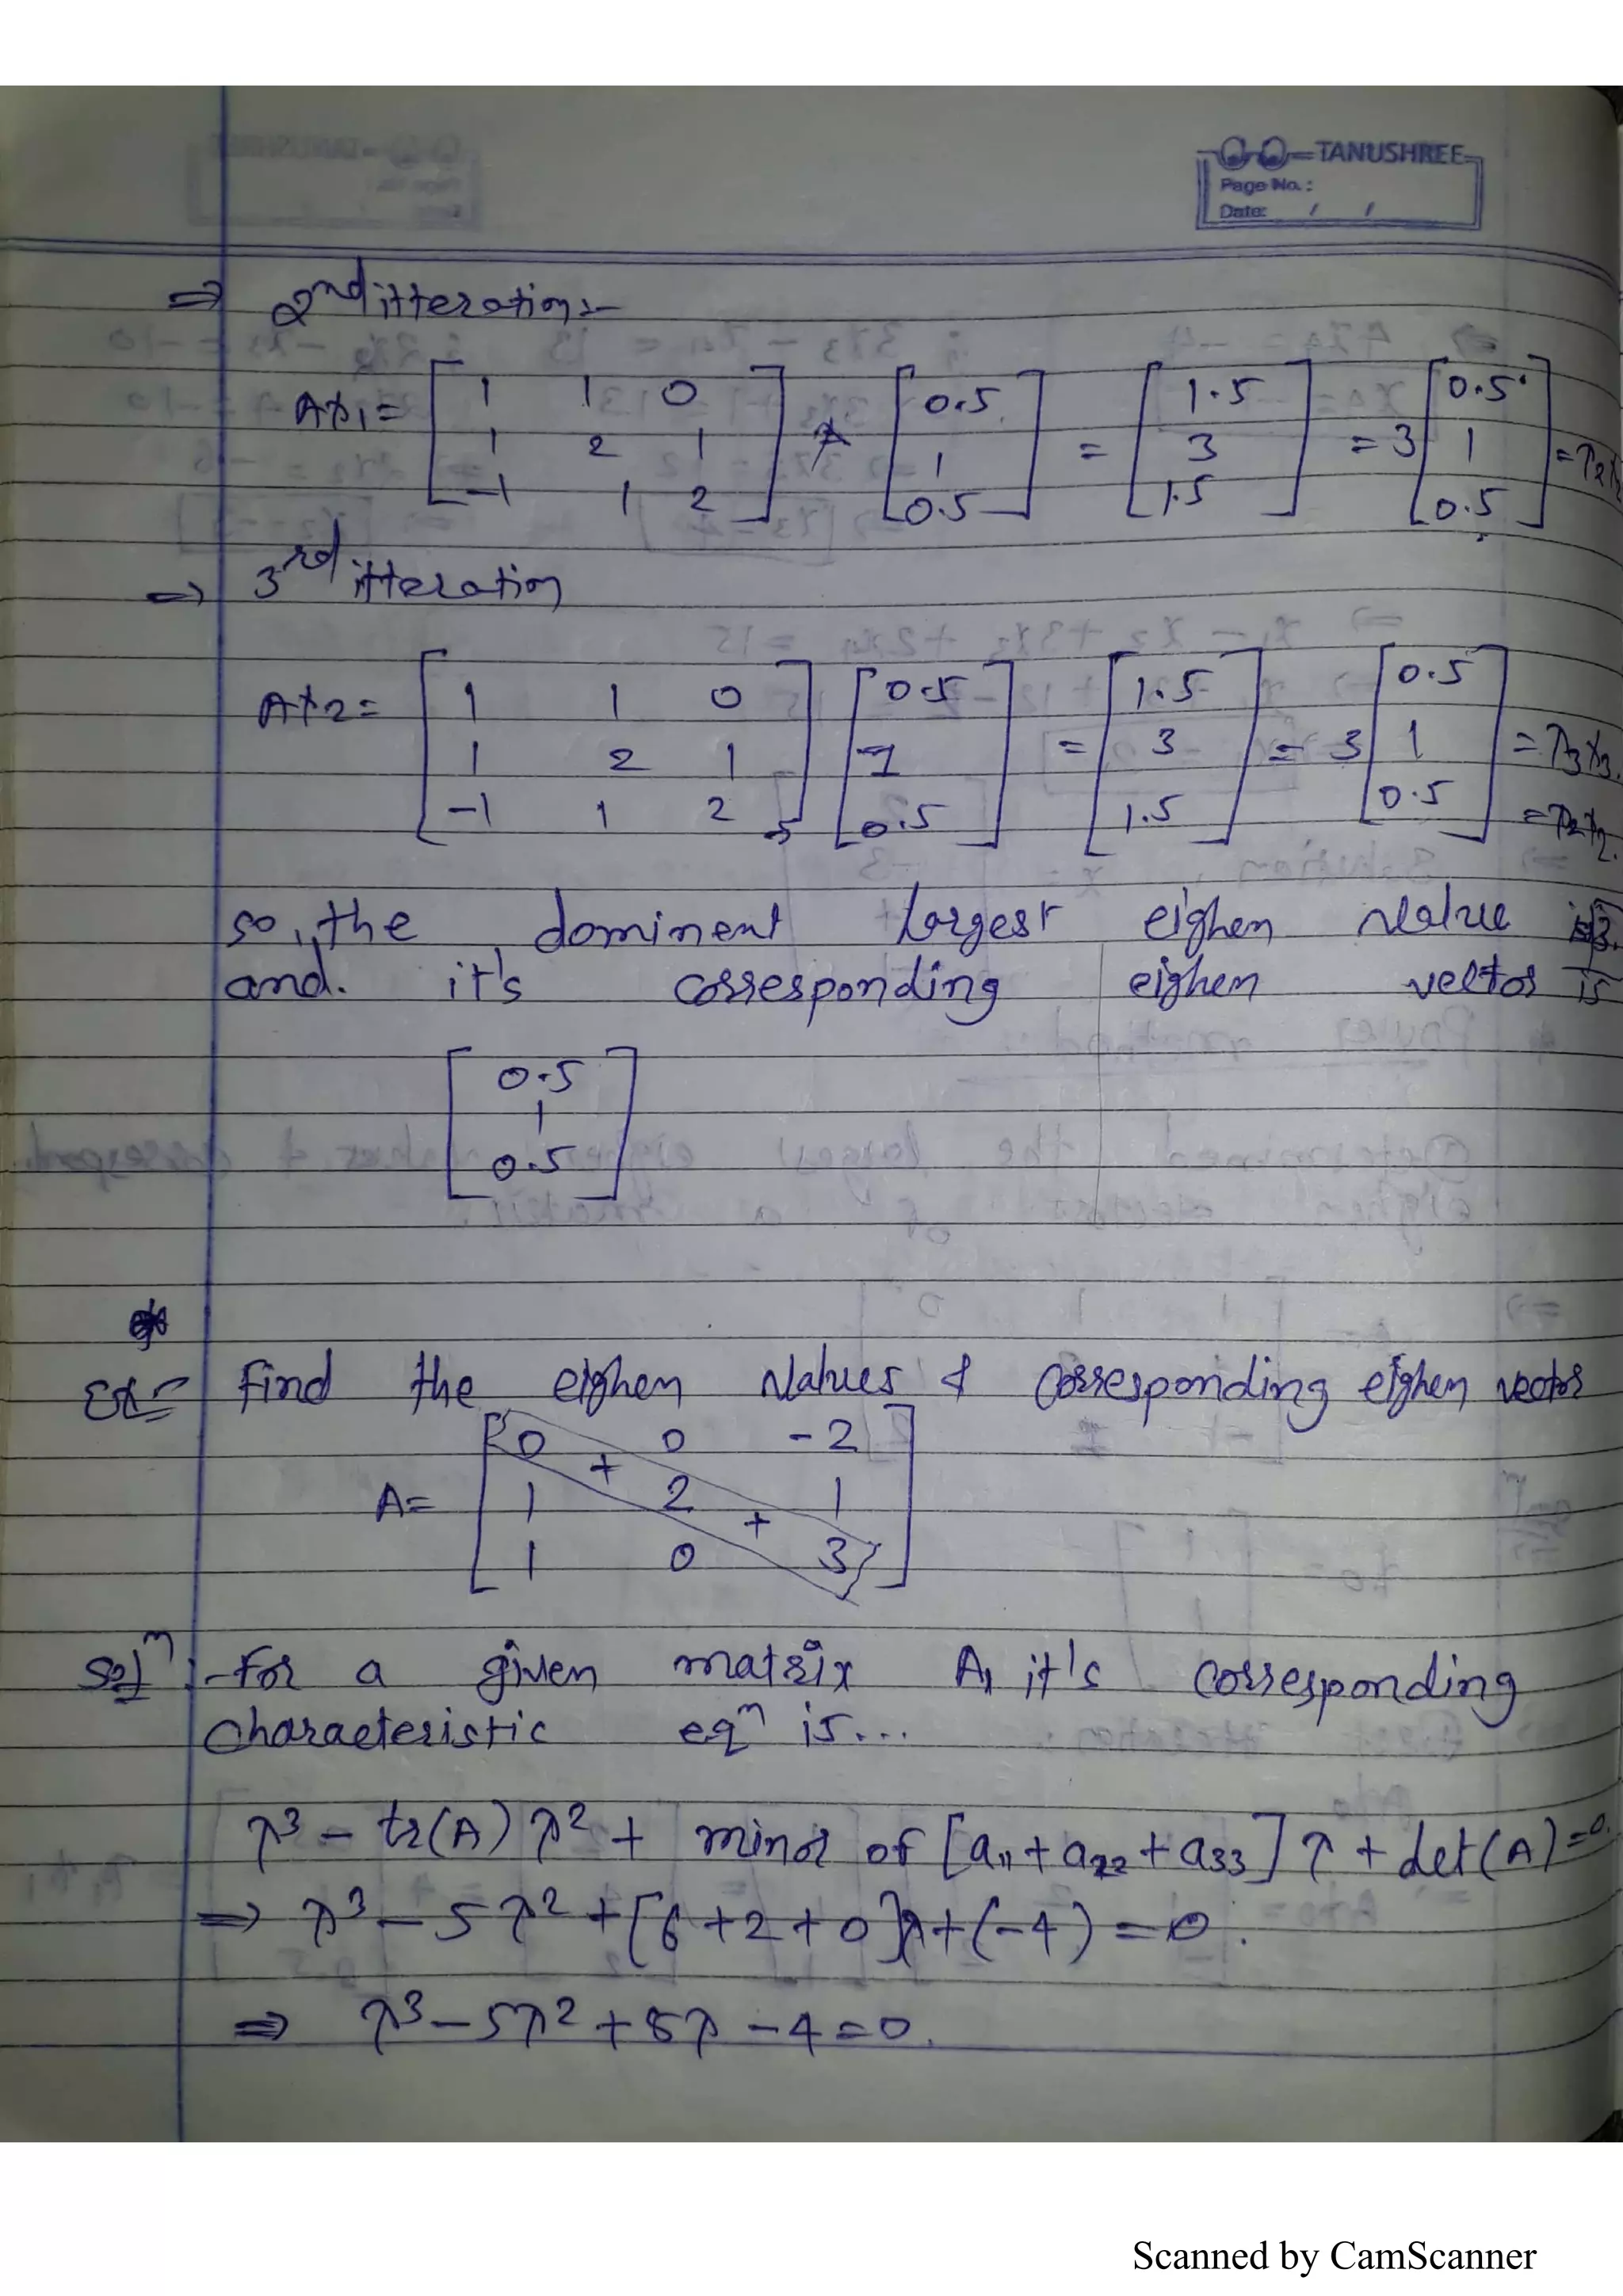 TANUSHREE
Page No. :
Date: / /
⇒ 2nd itteration:-
Ax1 = [1 1 0; 1 2 1; -1 1 2] [0.5; 1; 0.5] = [1.5; 3; 1.5] = 3 [0.5; 1; 0.5] = λ2x2
⇒ 3rd itteration
Ax2 = [1 1 0; 1 2 1; -1 1 2] [0.5; 1; 0.5] = [1.5; 3; 1.5] = 3 [0.5; 1; 0.5] = λ3x3.
= λ2x2.
so, the dominent largest eighen value is 3.
and. it's corresponding eighen vector is
[0.5; 1; 0.5]
Ex:- find the eighen values & corresponding eighen vector
A = [0 0 -2; 1 2 1; 1 0 3]
+ +
Sol^n :- for a given matrix A, it's corresponding
characteristic eq^n is...
λ^3 - tr(A) λ^2 + minor of [a11 + a22 + a33] λ + det(A) = 0.
⇒ λ^3 - 5λ^2 + [6 + 2 + 0]λ + (-4) = 0.
⇒ λ^3 - 5λ^2 + 8λ - 4 = 0.
Scanned by CamScanner